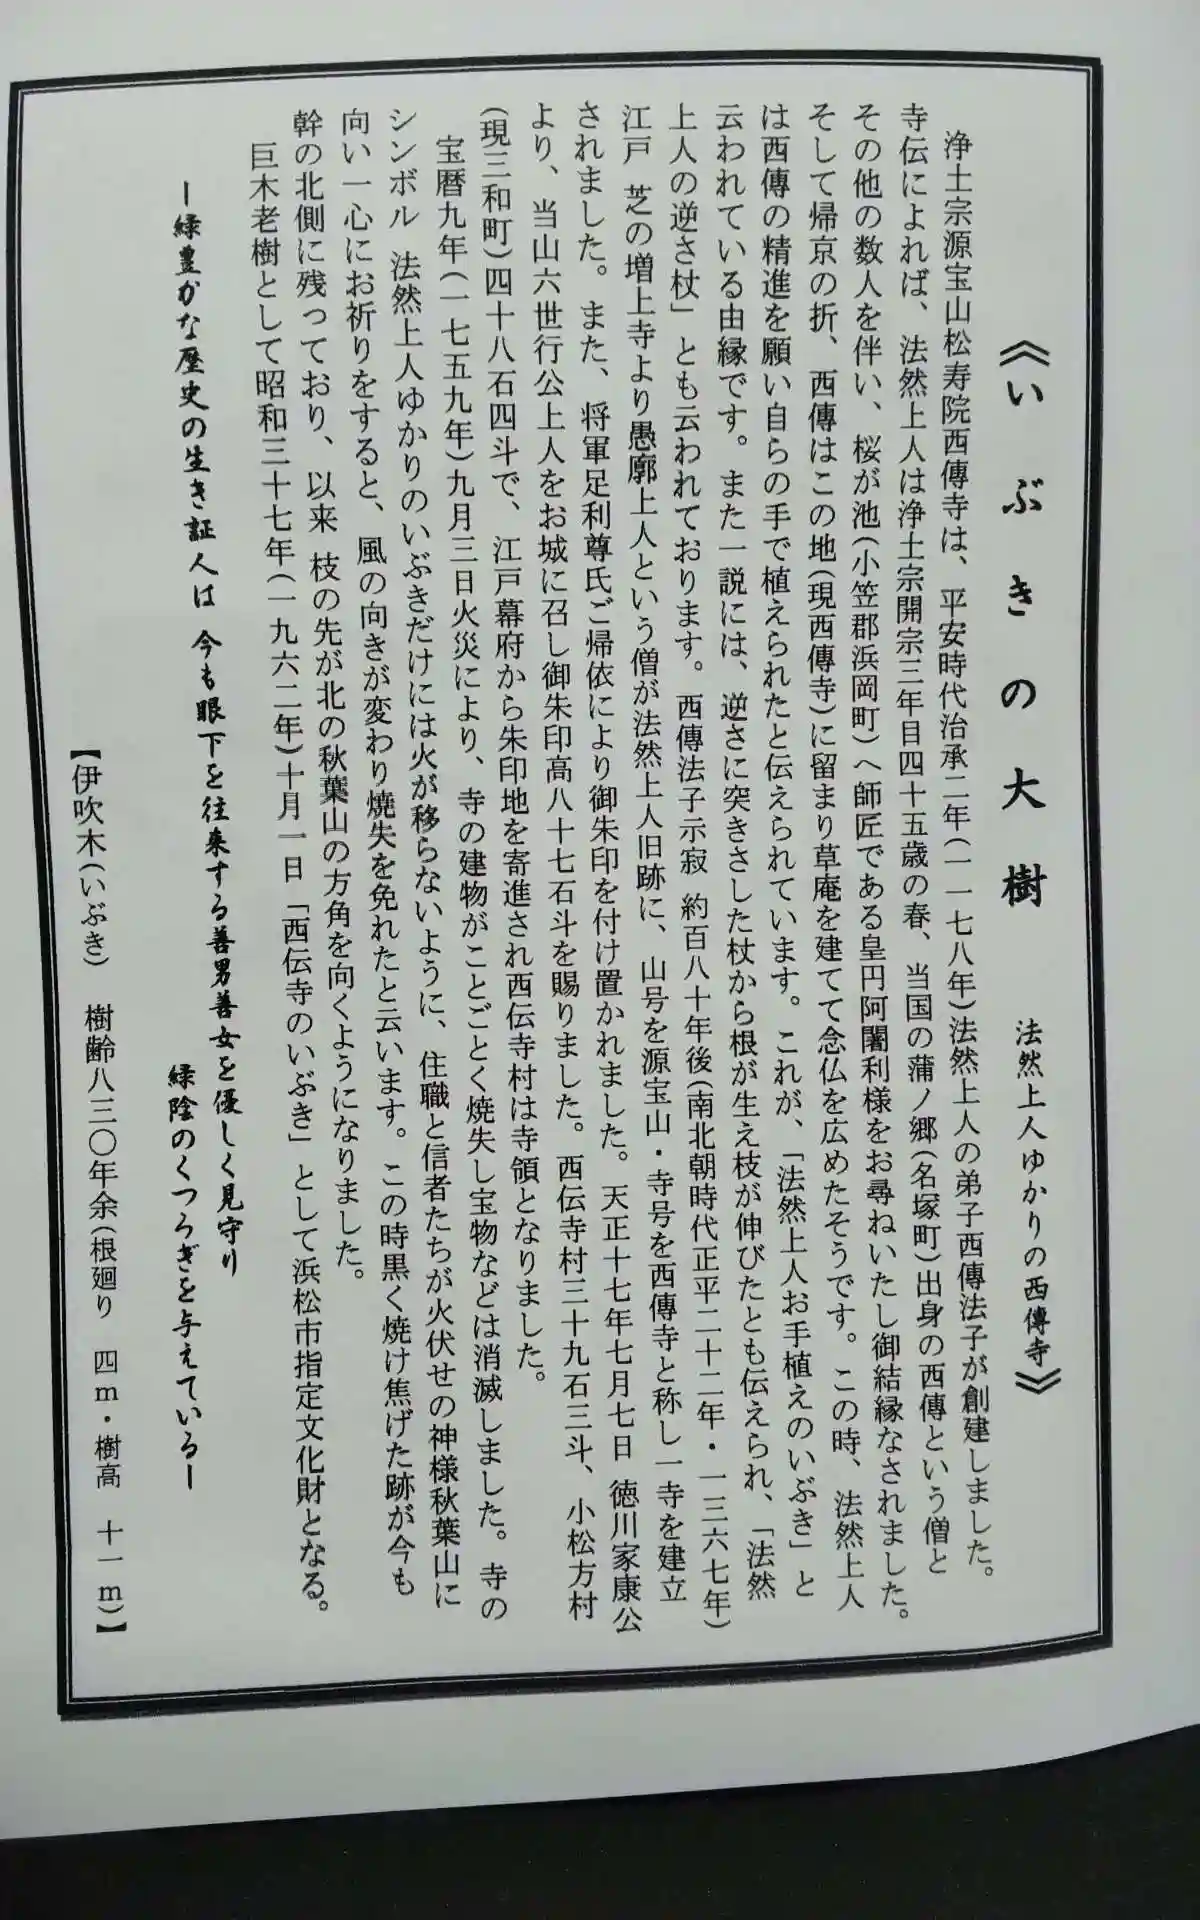 《いぶきの大樹 法然上人ゆかりの西傳寺》
浄土宗源宝山松寿院西傳寺は、平安時代治承二年(一一七八年)法然上人の弟子西傳法子が創建しました。
寺伝によれば、法然上人は浄土宗開宗三年目四十五歳の春、当国の蒲ノ郷(名塚町)出身の西傳という僧と
その他の数人を伴い、桜が池(小笠郡浜岡町)へ師匠である皇円阿闍利様をお尋ねいたし御結縁なされました。
そして帰京の折、西傳はこの地(現西傳寺)に留まり草庵を建てて念仏を広めたそうです。この時、法然上人
は西傳の精進を願い自らの手で植えられたと伝えられています。これが、「法然上人お手植えのいぶき」と
云われている由縁です。また一説には、逆さに突きさした杖から根が生え枝が伸びたとも伝えられ、「法然
上人の逆さ杖」とも云われております。西傳法子示寂 約百八十年後(南北朝時代正平二十二年・一三六七年)
江戸 芝の増上寺より愚廓上人という僧が法然上人旧跡に、山号を源宝山・寺号を西傳寺と称し一寺を建立
されました。また、将軍足利尊氏ご帰依により御朱印を付け置かれました。天正十七年七月七日 徳川家康公
より、当山六世行公上人をお城に召し御朱印高八十七石斗を賜りました。西伝寺村三十九石三斗、小松方村
(現三和町)四十八石四斗で、江戸幕府から朱印地を寄進され西伝寺村は寺領となりました。
宝暦九年(一七五九年)九月三日火災により、寺の建物がことごとく焼失し宝物などは消滅しました。寺の
シンボル 法然上人ゆかりのいぶきだけには火が移らないように、住職と信者たちが火伏せの神様秋葉山に
向い一心にお祈りをすると、風の向きが変わり焼失を免れたと云います。この時黒く焼け焦げた跡が今も
幹の北側に残っており、以来 枝の先が北の秋葉山の方角を向くようになりました。
巨木老樹として昭和三十七年(一九六二年)十月一日「西伝寺のいぶき」として浜松市指定文化財となる。
ー緑豊かな歴史の生き証人は 今も眼下を往来する善男善女を優しく見守り
緑陰のくつろぎを与えているー
【伊吹木(いぶき) 樹齢八三〇年余(根廻り 四m・樹高 十一m)】